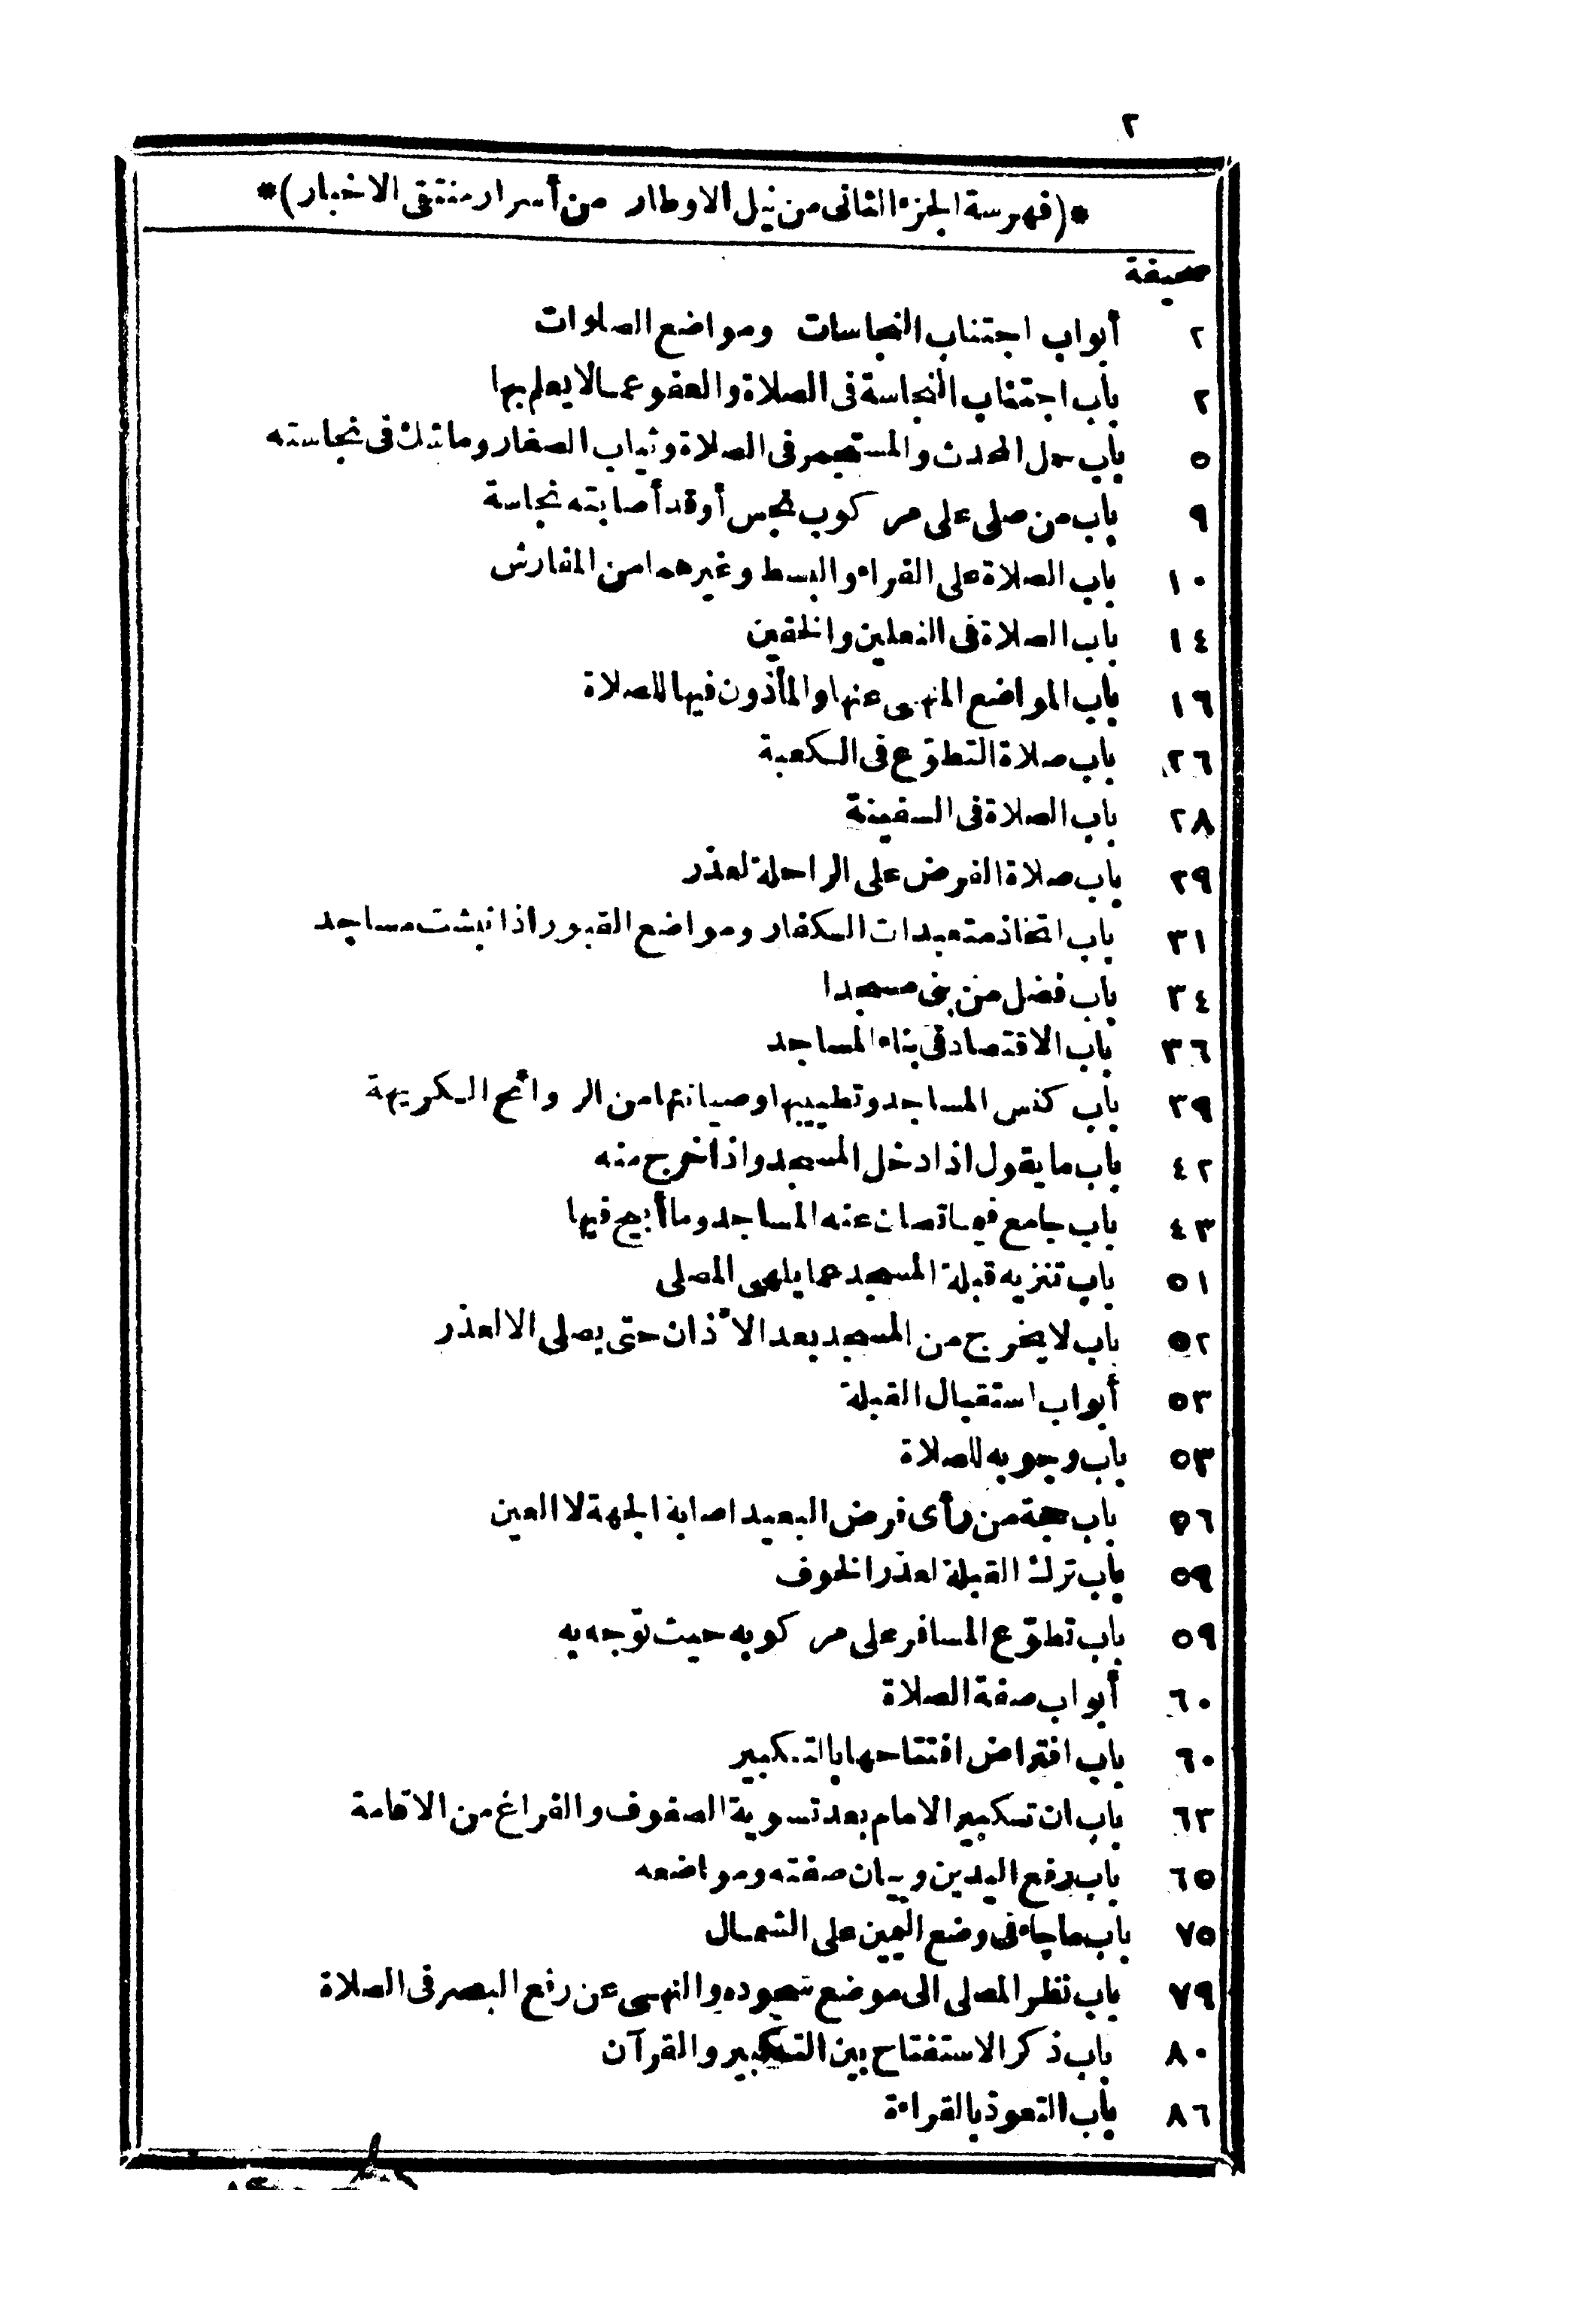 ٢
*(فهرسة الجزء الثانى من نيل الاوطار من أسرار منتقى الاخبار)*
صحيفة
٢ أبواب اجتناب النجاسات ومواضع الصلوات
٢ باب اجتناب النجاسة فى الصلاة والعفو عمالا يعلم بها
٥ باب حمل المحدث والمستجمر فى الصلاة وثياب الصغار وماشك فى نجاسته
٩ باب من صلى على مركوب نجس أوقد أصابته نجاسة
١٠ باب الصلاة على الفراء والبسط وغيرهما من المفارش
١٤ باب الصلاة فى النعلين والخفين
١٦ باب المواضع المنهى عنها والمأذون فيها للصلاة
٢٦ باب صلاة التطوّع فى الكعبة
٢٨ باب الصلاة فى السفينة
٢٩ باب صلاة الفرض على الراحلة لعذر
٣١ باب اتخاذ متعبدات الكفار ومواضع القبور اذا نبشت مساجد
٣٤ باب فضل من بنى مسجدا
٣٦ باب الاقتصاد فى بناء المساجد
٣٩ باب كنس المساجد وتطييبها وصيانتها من الروائح الكريهة
٤٢ باب ما يقول اذا دخل المسجد واذا خرج منه
٤٣ باب جامع فيما تصان عنه المساجد وما أبيح فيها
٥١ باب تنزيه قبلة المسجد عما يلهى المصلى
٥٢ باب لا يخرج من المسجد بعد الأذان حتى يصلى الا لعذر
٥٣ أبواب استقبال القبلة
٥٣ باب وجوبه للصلاة
٥٦ باب حجة من رأى فرض البعيد اصابة الجهة لا العين
٥٩ باب ترك القبلة لعذر الخوف
٥٩ باب تطوّع المسافر على مركوبه حيث توّجه به
٦٠ أبواب صفة الصلاة
٦٠ باب افتراض افتتاحها بالتكبير
٦٣ باب ان تكبير الامام بعد تسوية الصفوف والفراغ من الاقامة
٦٥ باب رفع اليدين وبيان صفته ومواضعه
٧٥ باب ماجاء فى وضع اليمين على الشمال
٧٩ باب نظر المصلى الى موضع سجوده والنهى عن رفع البصر فى الصلاة
٨٠ باب ذكر الاستفتاح بين التكبير والقرآن
٨٦ باب التعوذ بالقراءة